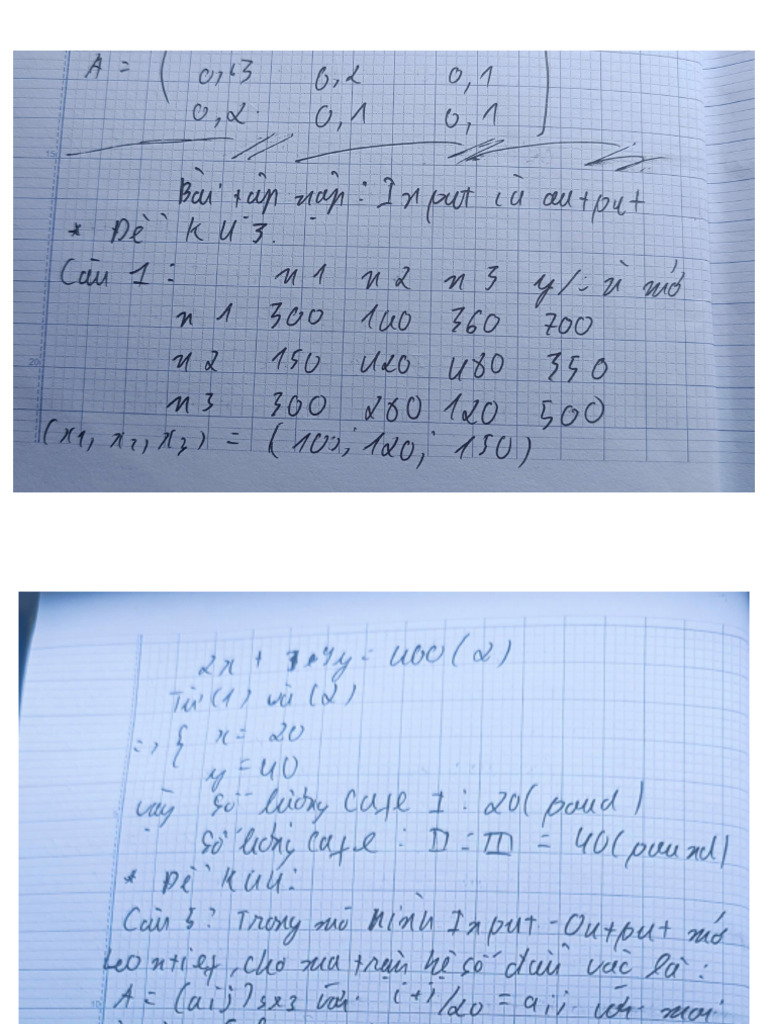 A = ( 0,13 0,2 0,1
0,2 0,1 0,1 )
Bài tập nạp : Input và output
* Đề K43.
Câu 1 : x1 x2 x3 y/: x mở
x1 300 140 360 700
x2 150 420 480 350
x3 300 280 120 500
(x1, x2, x3) = (100; 120; 150)
2x + y = 400 (2)
Từ (1) và (2)
=> { x = 20
y = 40
Vậy số lượng cafe I : 20 (poud)
Số lượng cafe : II = III = 40 (pound)
* Đề K44:
Câu 3? Trong mô hình Input - Output mở
Leontief, cho ma trận hệ số đầu vào là :
A = (aij)3x3 với i+j/20 = aij với mọi